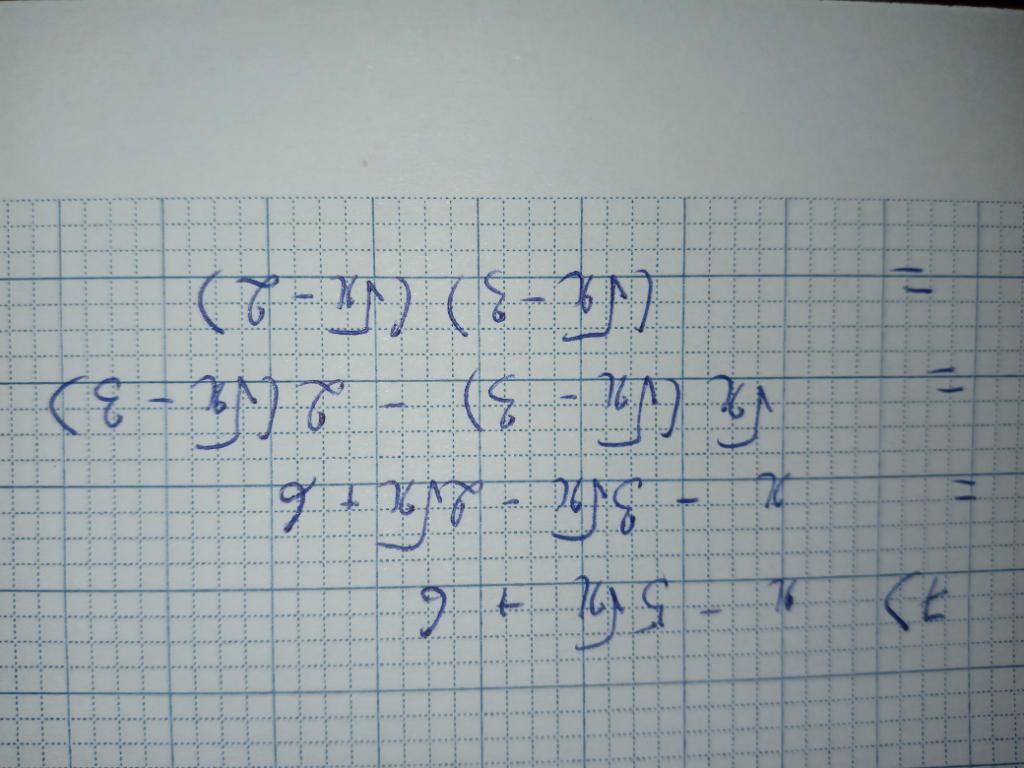 7) x - 5√x + 6
= x - 3√x - 2√x + 6
= √x (√x - 3) - 2 (√x - 3)
= (√x - 3) (√x - 2)